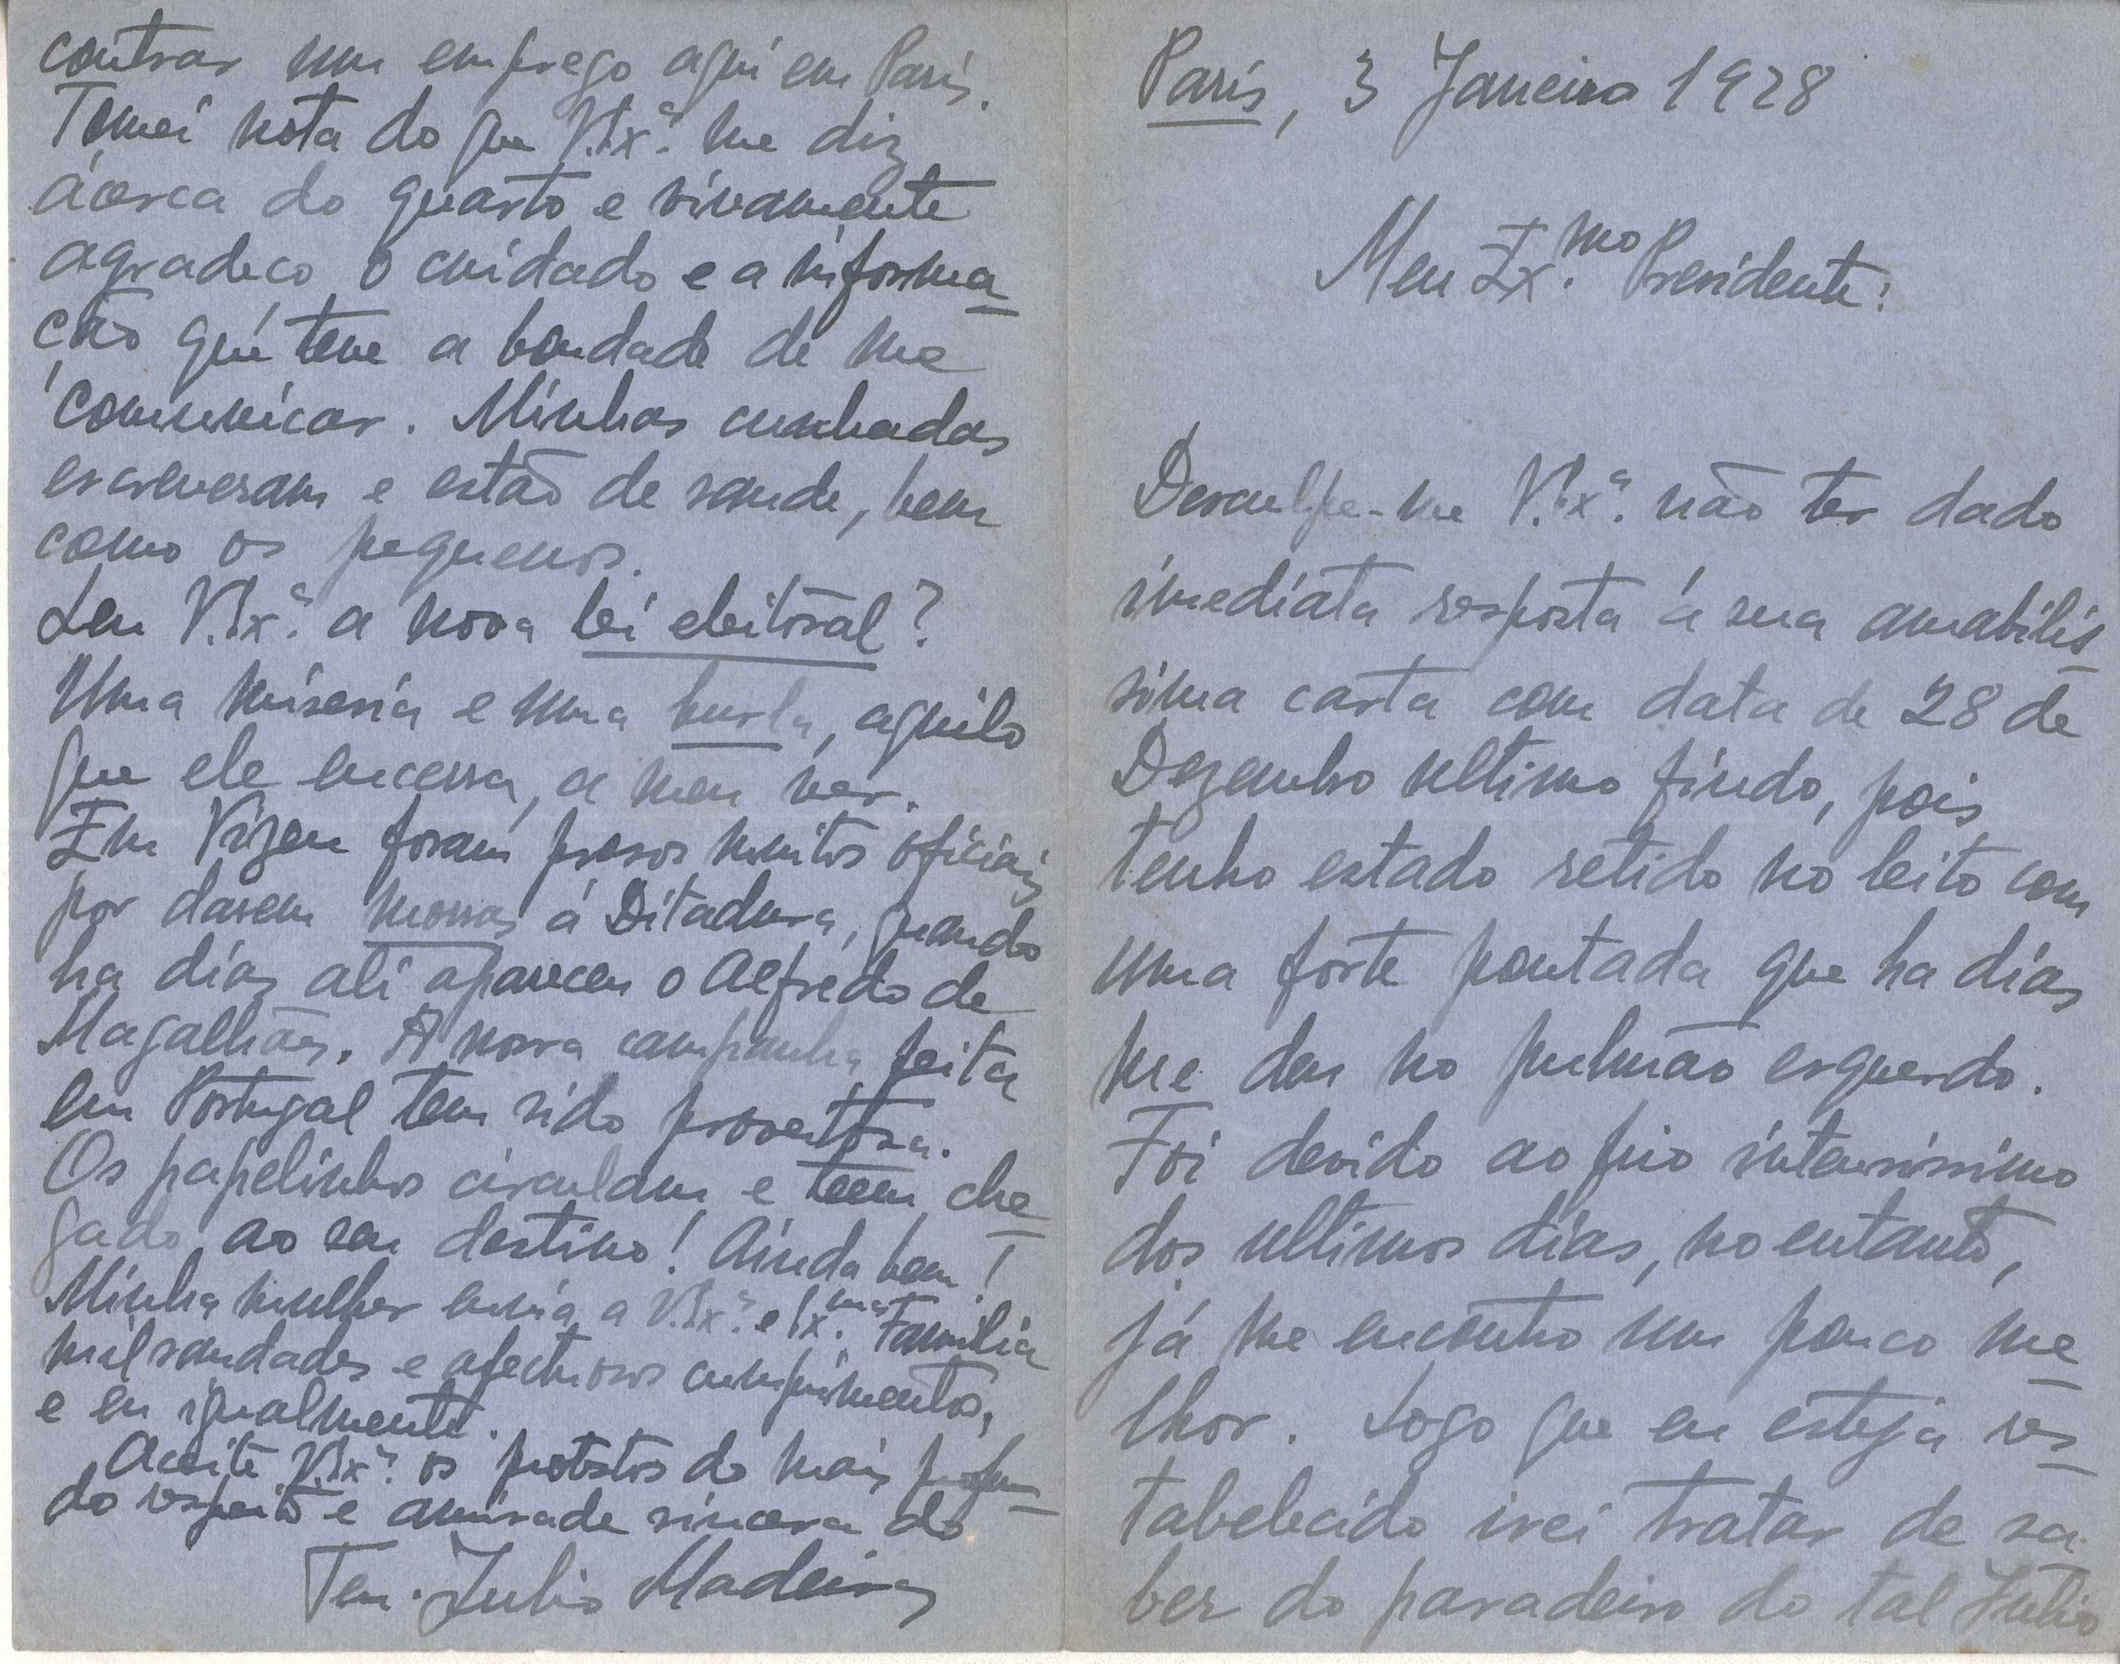 Paris, 3 Janeiro 1928
Meu Ex.mo Presidente:
Desculpe-me V.Exª. não ter dado
imediata resposta á sua amabilis-
sima carta com data de 28 de
Dezembro ultimo findo, pois
tenho estado retido no leito com
uma forte pontada que ha dias
me deu no pulmão esquerdo.
Foi devido ao frio intensissimo
dos ultimos dias, no entanto,
já me encontro um pouco me-
lhor. Logo que eu esteja res-
tabelecido irei tratar de sa-
ber do paradeiro do tal Julio
contrar um emprego aqui em Paris.
Tomei nota do que V.Exª. me diz
ácerca do quarto e vivamente
agradeço o cuidado e a informa-
ção que teve a bondade de me
comunicar. Minhas cunhadas
escreveram e estão de saude, bem
como os pequenos.
Leu V.Exª. a nova lei eleitoral?
Uma miseria e uma burla, aquilo
que ele encerra, a meu ver.
Em Vizeu foram presos muitos oficiais
por darem morras á Ditadura, quando
ha dias ali apareceu o Alfredo de
Magalhães. A nossa campanha feita
em Portugal tem sido proveitosa.
Os papelinhos circulam e teem che-
gado ao seu destino! Ainda bem!
Minha mulher envia a V.Exª. e Ex.ma Familia
mil saudades e afectuosos cumprimentos,
e eu igualmente.
Aceite V.Exª. os protestos do mais profun-
do respeito e amisade sincera do
Ten. Julio Madeira